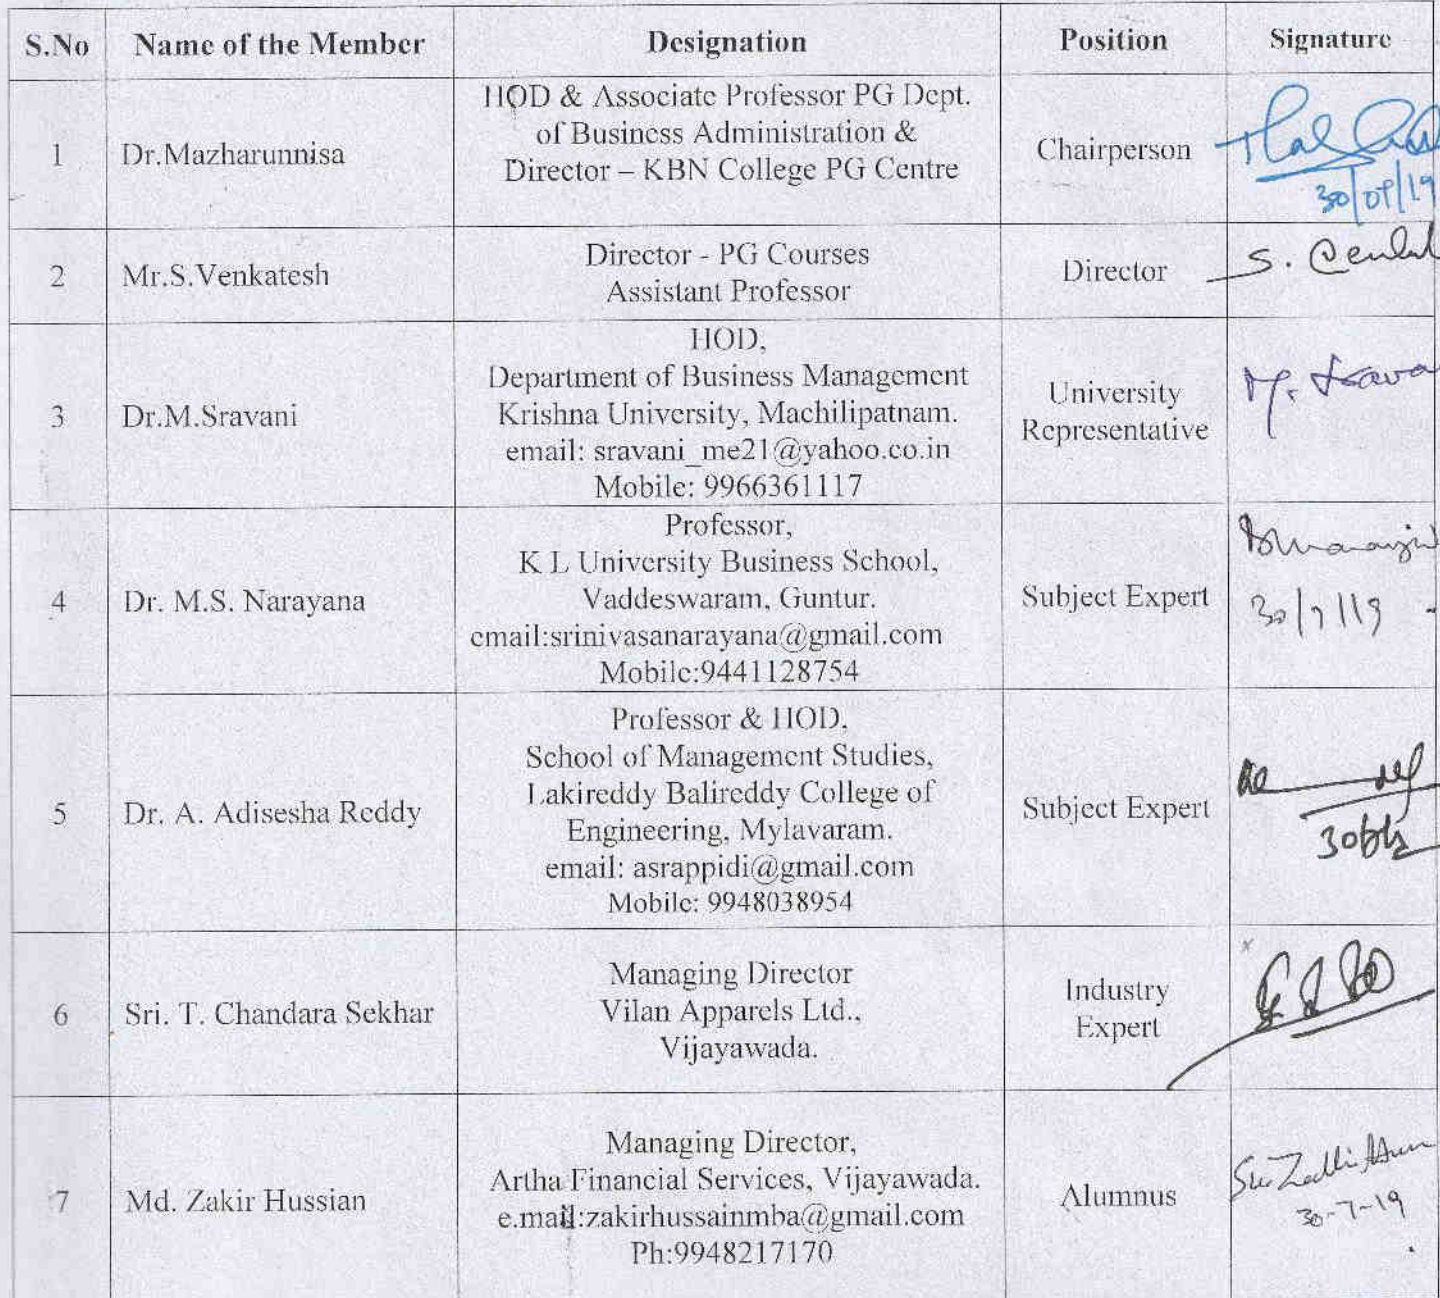 S.No Name of the Member Designation Position Signature
1 Dr.Mazharunnisa
HOD & Associate Professor PG Dept.
of Business Administration &
Director – KBN College PG Centre
Chairperson
2 Mr.S.Venkatesh
Director - PG Courses
Assistant Professor
Director
S.
3 Dr.M.Sravani
HOD,
Department of Business Management
Krishna University, Machilipatnam.
email: sravani_me21@yahoo.co.in
Mobile: 9966361117
University
Representative
M.
4 Dr. M.S. Narayana
Professor,
K L University Business School,
Vaddeswaram, Guntur.
email:srinivasanarayana@gmail.com
Mobile:9441128754
Subject Expert
30/7/19
5 Dr. A. Adisesha Reddy
Professor & HOD,
School of Management Studies,
Lakireddy Balireddy College of
Engineering, Mylavaram.
email: asrappidi@gmail.com
Mobile: 9948038954
Subject Expert
6 Sri. T. Chandara Sekhar
Managing Director
Vilan Apparels Ltd.,
Vijayawada.
Industry
Expert
7 Md. Zakir Hussian
Managing Director,
Artha Financial Services, Vijayawada.
e.mail:zakirhussainmba@gmail.com
Ph:9948217170
Alumnus
30-7-19